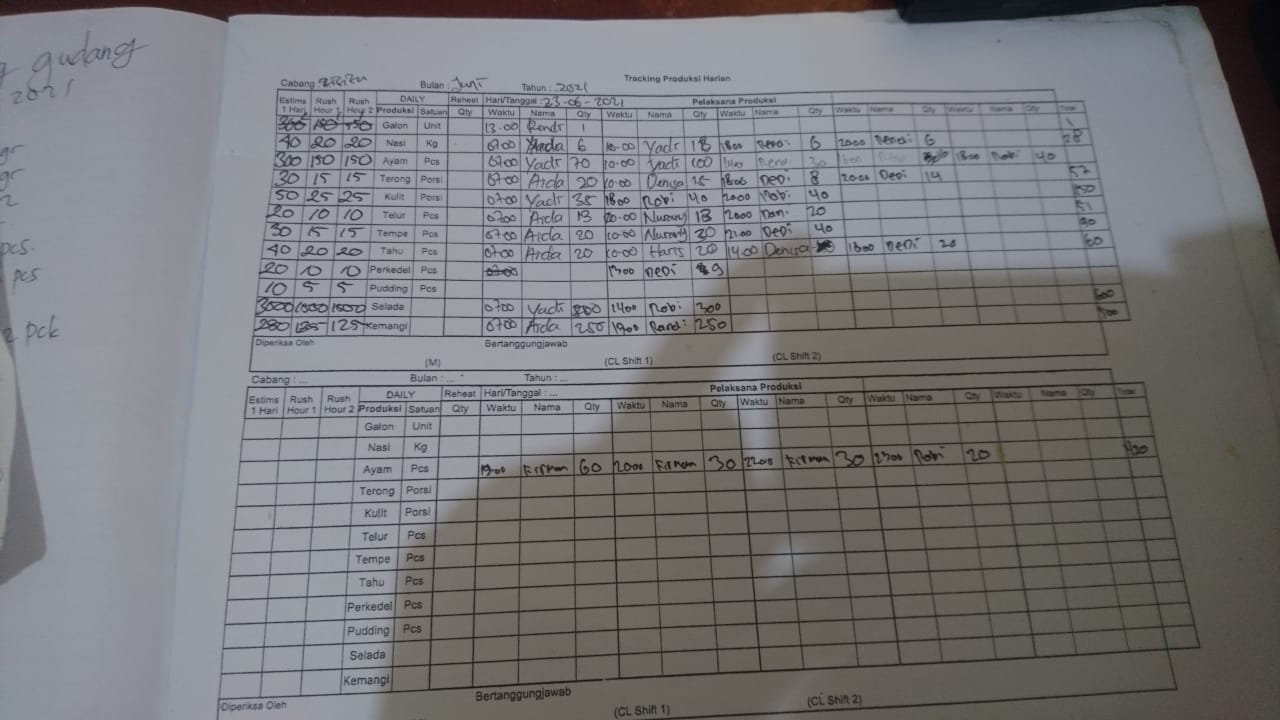 gudang
2021
gr
gr
pcs.
pcs
2 pck
Tracking Produksi Harian
Cabang : Bulan : Juni Tahun : 2021
Estims 1 Hari Rush Hour 1 Rush Hour 2 DAILY Reheat Hari/Tanggal : 23-06-2021 Pelaksana Produksi
Produksi Satuan Qty Waktu Nama Qty Waktu Nama Qty Waktu Nama Qty Waktu Nama Qty Waktu Nama Qty Total
300 150 150 Galon Unit 13.00 Rendi 1 1
40 20 20 Nasi Kg 0700 Aida 6 10.00 Yadi 18 1800 6 2000 6 28
300 150 150 Ayam Pcs 0700 Yadi 70 10.00 Yadi 100 1400 30 1800 Robi 40
30 15 15 Terong Porsi 0700 Aida 20 10.00 Denisa 15 1800 Depi 8 2000 Depi 14 57
50 25 25 Kulit Porsi 0700 Yadi 35 1800 Robi 40 2000 Robi 40
20 10 10 Telur Pcs 0700 Aida 13 Nurany 18 2000 20 51
30 15 15 Tempe Pcs 0700 Aida 20 10.00 Nurany 30 21.00 Depi 40 90
40 20 20 Tahu Pcs 0700 Aida 20 10.00 Haris 20 1400 Denisa 1800 Depi 20 60
20 10 10 Perkedel Pcs 0700 1300 Depi 9
10 5 5 Pudding Pcs
3000 1500 1500 Selada 0700 Yadi 1400 Robi 300 600
125 Kemangi 0700 Aida 250 1900 Randi 250 500
Diperiksa Oleh Bertanggungjawab
(M) (CL Shift 1) (CL Shift 2)
Cabang : ... Bulan : ... Tahun : ...
Estims 1 Hari Rush Hour 1 Rush Hour 2 DAILY Reheat Hari/Tanggal : ... Pelaksana Produksi
Produksi Satuan Qty Waktu Nama Qty Waktu Nama Qty Waktu Nama Qty Waktu Nama Qty Waktu Nama Qty Total
Galon Unit
Nasi Kg
Ayam Pcs 19.00 Firman 60 2000 Firman 30 2200 Firman 30 2300 Robi 20 420
Terong Porsi
Kulit Porsi
Telur Pcs
Tempe Pcs
Tahu Pcs
Perkedel Pcs
Pudding Pcs
Selada
Kemangi
Diperiksa Oleh Bertanggungjawab
(CL Shift 1) (CL Shift 2)